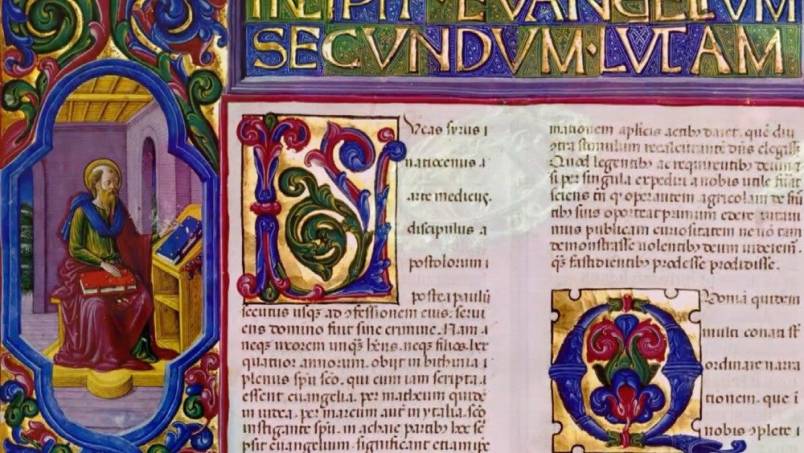 INCIPIT EVANGELIVM
SECVNDVM·LVCAM
LVcas syrus i
natiocenus a
arte medicus.
discipulus a
postolorum i
postea pauli
secutus usq; ad confessionem eius. serui
ens domino fuit sine crimine. Nam
neq; uxorem unq; hns. neq; filios. lxx
quatior annorum. obijt in bithinia
plenus spu sco. qui cum iam scripta
essent euangelia. per matheum quide
in iudea. per marcum aut in ytalia. sco
instigante spu. in achaie partibus
psit euangelium. significans etiam ipe
actibus
stimulum recalcitrante dns elegisse
Quod legentib; ac requirentib; deum
si per singula expediri a nobis utile
sciens tn q operantem agricolam
sius oporteat primum edere
mus publicam curiositatem ne no tam
demonstrasse uolentib; deum uideremur
q; fastidientib; prodesse prodidisse.
QVoniam quidem
multi conati
ordinare narra
tionem. que i
nobis oplete